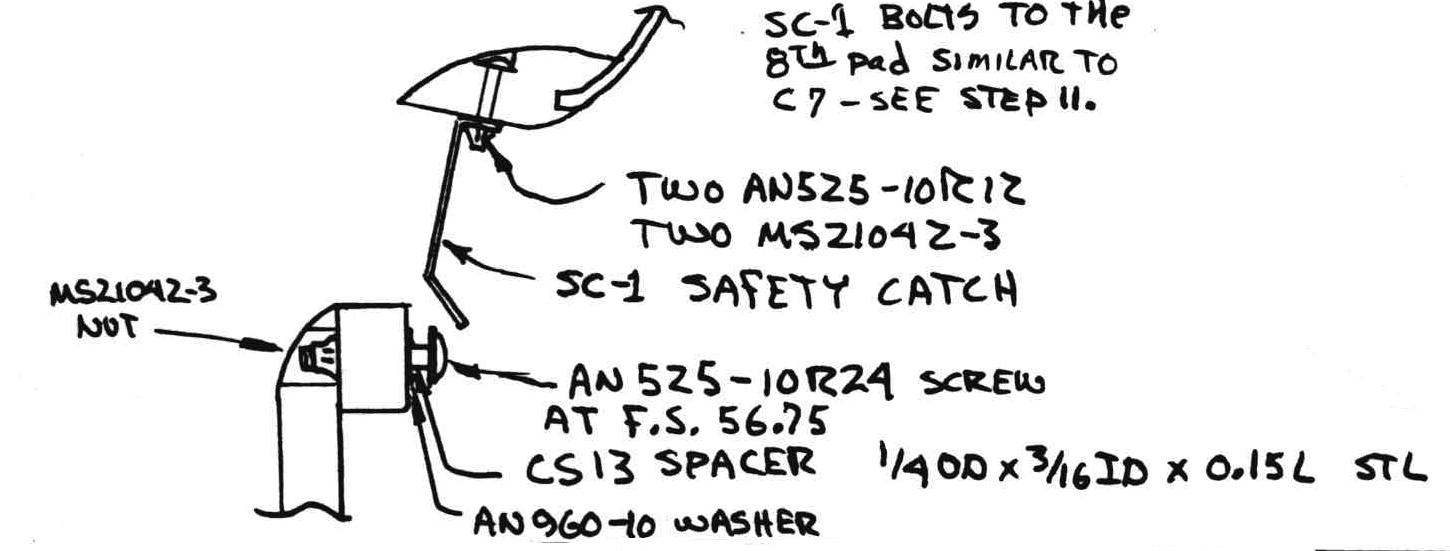 SC-1 BOLTS TO THE
8Th pad SIMILAR TO
C7 - SEE STEP 11.
TWO AN525-10R12
TWO MS21042-3
SC-1 SAFETY CATCH
MS21042-3
NUT
AN525-10R24 SCREW
AT F.S. 56.75
CS13 SPACER 1/4 OD x 3/16 ID x 0.15L STL
AN960-10 WASHER